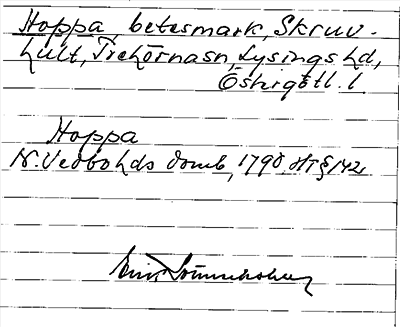 Hoppa, betesmark, Skruv-
hult, Trehörnasn, Lysings hd,
Östergötl. l
Hoppa
N. Vedbo hds domb, 1790, HT § 142